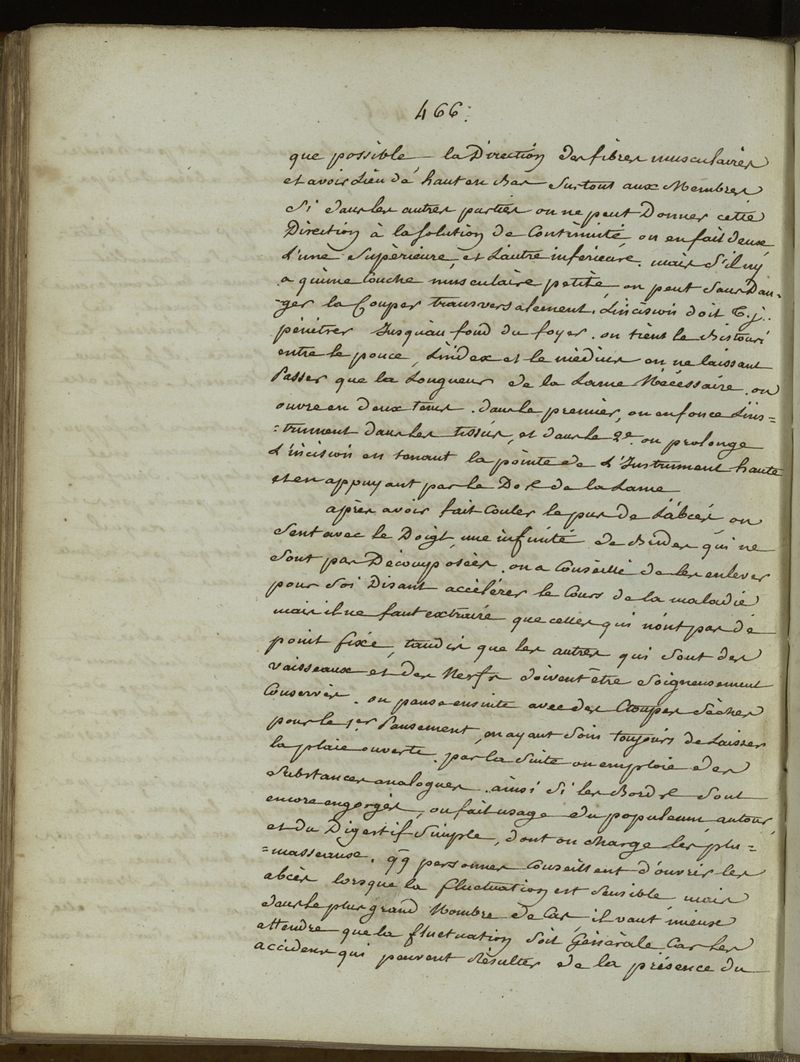 466.
que possible la Direction des fibres musculaires
et avoir Lieu de haut en Bas surtout aux Membres
Si dans les autres parties on ne peut Donner cette
Direction à la solution de Continuité, on en fait deux
L'une Supérieure, et L'autre inférieure. mais S'il ny
a qu'une Couche musculaire petite, on peut sans Dan-
ger la Couper transversalement. L'incision doit t. j.
pénétrer Jusqu'au fond du foyer. on tient le Bistouri
entre le pouce, L'index et le médius en ne laissant
Passer que la Longueur de la Lame Nécéssaire. on
ouvre en deux tems. dans le premier, on enfonce L'ins=
=trument dans les tissus, et dans le 2e. on prolonge
L'incision en tenant la pointe de L'Instrument haute
et en appuyant par le Dos de la Lame
après avoir fait Couler le pus de L'abcès on
Sent avec le Doigt, une infinité de Brides qui ne
Sont pas Décomposées. on a Conseillé de les enlever
pour soi Disant accélérer le Cours de la maladie
mais il ne faut extraire que celles qui n'ont pas de
point fixe, tandis que les autres qui sont des
vaisseaux et des Nerfs doivent être Soigneusement
Conservés. on panse ensuite avec des Etoupes Sèches
pour le 1er Pansement, en ayant Soin toujours de Laisser
la plaie ouverte. par la Suite on emploie des
Substances analogues. ainsi Si les Bords sont
encore engorgés, on fait usage du populeum autour,
et du Digestif Simple, dont on charge les plu=
=masseaux. qq personnes Conseillent d'ouvrir les
abcès lorsque la fluctuation est Sensible, mais
dans le plus grand Nombre de Cas il vaut mieux
attendre que la fluctuation Soit Générale Car les
accidens qui peuvent Résulter de la présence du